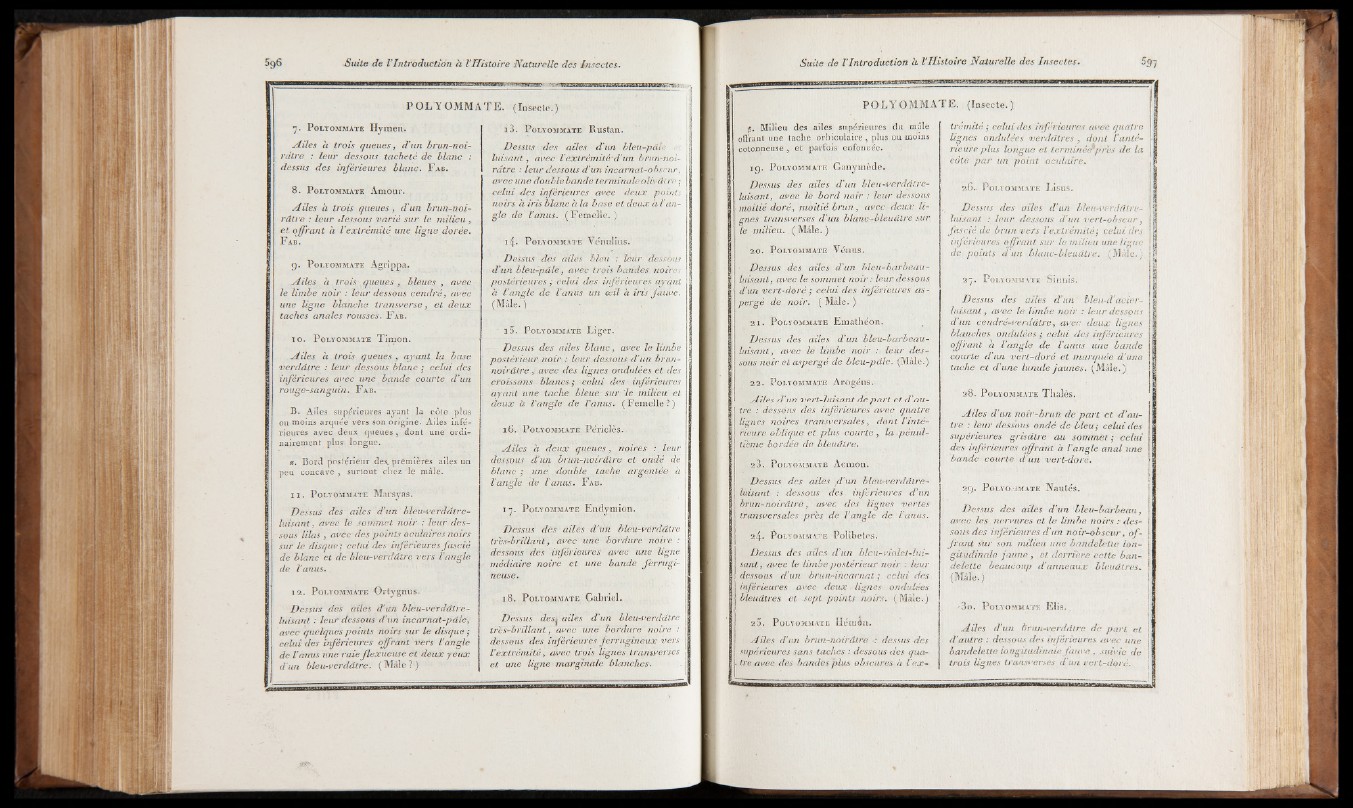 596 Suite de l'Introduction à l'Histoire Naturelle des Insectes.
POLYOMMATE. (Insecte.)
7. Polyommate Hymen.
Ailes à trois queues, d'un brun-noi-
râtre : leur dessous tacheté de blanc :
dessus des inférieures blanc. Fab.
8. Polyommate Amour.
Ailes à trois queues, d'un brun-noi-
râtre : leur dessous varié sur le milieu,
et offrant à l'extrémité une ligne dorée.
Fab.
9. Polyommate Agrippa.
Ailes à trois queues, bleues, avec
le limbe noir : leur dessous cendré, avec
une ligne blanche transverse, et deux
taches anales rousses. Fab.
10. Polyommate Timon.
Ailes à trois queues, ayant la base
verdâtre : leur dessous blanc ; celui des
inférieures avec une bande courte d'un
rouge-sanguin. Fab.
B. Ailes supérieures ayant la côte plus
ou moins arquée vers son origine. Ailes infé-
rieures avec deux queues, dont une ordi-
nairement plus longue.
α. Bord postérieur des premières ailes un
peu concave, surtout chez le mâle.
11. Polyommate Marsyas.
Dessus des ailes d'un bleu-verdâtre-
luisant, avec le sommet noir : leur des-
sous lilas, avec des points oculaires noirs
sur le disque ; celui des inférieures fascié
de blanc et de bleu-verdâtre vers l'angle
de l'anus.
12. Polyommate Ortygnus.
Dessus des ailes d'un bleu-verdâtre-
luisant : leur dessous d'un incarnat-pâle,
avec quelques points noirs sur le disque ;
celui des inférieures offrant vers l'angle
de l'anus une raie flexueuse et deux yeux
d'un bleu-verdâtre. (Mâle ?)
13. Polyommate Rustan.
Dessus des ailes d'un bleu-pâle
luisant, avec l'extrémité d'un brun-noi-
râtre : leur dessous d'un incarnat-obscur,
avec une double bande terminale olivâtre ;
celui des inférieures avec deux points
noirs à iris blanc à la base et deux à l'an-
gle de l'anus. (Femelle.)
14. Polyommate Vénulius.
Dessus des ailes bleu : leur dessous
d'un bleu-pâle, avec trois bandes noires
postérieures ; celui des inférieures ayant
à l'angle de l'anus un œil à iris fauve.
(Mâle.)
15. Polyommate Liger.
Dessus des ailes blanc, avec le limbe
postérieur noir : leur dessous d'un brun-
noirâtre, avec des lignes ondulées et des
croissans blancs ; celui des inférieures
ayant une tache bleue sur le milieu et
deux à l'angle de l'anus. (Femelle ?)
16. Polyommate Périclès.
Ailes à deux queues, noires : leur
dessous d'un brun-noirâtre et ondé de
blanc ; une double tache argentée à
l'angle de l'anus. Fab.
17. Polyommate Endymion.
Dessus des ailes d'un bleu-verdâtre
très-brillant, avec une bordure noire :
dessous des inférieures avec une ligne
médiaire noire et une bande ferrugi-
neuse.
18. Polyommate Gabriel.
Dessus des ailes d'un bleu-verdâtre
très-brillant, avec une bordure noire :
dessous des inférieures ferrugineux vers
l'extrémité, avec trois lignes transverses
et une ligne marginale blanches.
Suite de l'Introduction à l'Histoire Naturelle des Insectes. 597
POLYOMMATE. (Insecte.)
β. Milieu des ailes supérieures du mâle
offrant une tache orbiculaire, plus ou moins
cotonneuse, et parfois enfoncée.
19. Polyommate Ganymède.
Dessus des ailes d'un bleu-verdâtre-
luisant, avec le bord noir : leur dessous
moitié doré, moitié brun, avec deux li-
gnes transverses d'un blanc-bleuâtre sur
le milieu. (Mâle.)
20. Polyommate Vénus.
Dessus des ailes d'un bleu-barbeau-
luisant, avec le sommet noir : leur dessous
d'un vert-doré ; celui des inférieures as-
pergé de noir. (Mâle.)
21. Polyommate Emathéon.
Dessus des ailes d'un bleu-barbeau-
luisant, avec le limbe noir : leur des-
sous noir et aspergé de bleu-pâle. (Mâle.)
22. Polyommate Arogéus.
Ailes d'un vert-luisant de part et d'au-
tre : dessous des inférieures avec quatre
lignes noires transversales, dont l'inté-
rieure oblique et plus courte, la pénul-
tième bordée de bleuâtre.
23. Polyommate Acmon.
Dessus des ailes d'un bleu-verdâtre-
luisant : dessous des inférieures d'un
brun-noirâtre, avec des lignes vertes
transversales près de l'angle de l'anus.
24. Polyommate Polibetes.
Dessus des ailes d'un bleu-violet-lui-
sant, avec le limbe postérieur noir : leur
dessous d'un brun-incarnat ; celui des
inférieures avec deux lignes ondulées
bleuâtres et sept points noirs. (Mâle.)
25. Polyommate Hémon.
Ailes d'un brun-noirâtre : dessus des
supérieures sans taches : dessous des qua-
tre avec des bandes plus obscures à l'ex-
trémité ; celui des inférieures avec quatre
lignes ondulées verdâtres, dont l'anté-
rieure plus longue et terminée près de la
côte par un point oculaire.
26. Polyommate Lisus.
Dessus des ailes d'un bleu-verdâtre-
luisant : leur dessous d'un vert-obscur,
fascié de brun vers l'extrémité ; celui des
inférieures offrant sur le milieu une ligne
de points d'un blanc-bleuâtre. (Mâle.)
27. Polyommate Sinnis.
Dessus des ailes d'un bleu-d'acier-
luisant, avec le limbe noir : leur dessous
d'un cendré-verdâtre, avec deux lignes
blanches ondulées ; celui des inférieures
offrant à l'angle de l'anus une bande
courte d'un vert-doré et marquée d'une
tache et d'une lunule jaunes. (Mâle.)
28. Polyommate Thalès.
Ailes d'un noir-brun de part et d'au-
tre : leur dessous ondé de bleu ; celui des
supérieures grisâtre au sommet ; celui
des inférieures offrant à l'angle anal une
bande courte d'un vert-doré.
29. Polyommate Nautés.
Dessus des ailes d'un bleu-barbeau,
avec les nervures et le limbe noirs : des-
sous des inférieures d'un noir-obscur, of-
frant sur son milieu une bandelette lon-
gitudinale jaune, et derrière cette ban-
delette beaucoup d'anneaux bleuâtres.
(Mâle.)
30. Polyommate Elis.
Ailes d'un brun-verdâtre de part et
d'autre : dessous des inférieures avec une
bandelette longitudinale fauve, suivie de
trois lignes transverses d'un vert-doré.